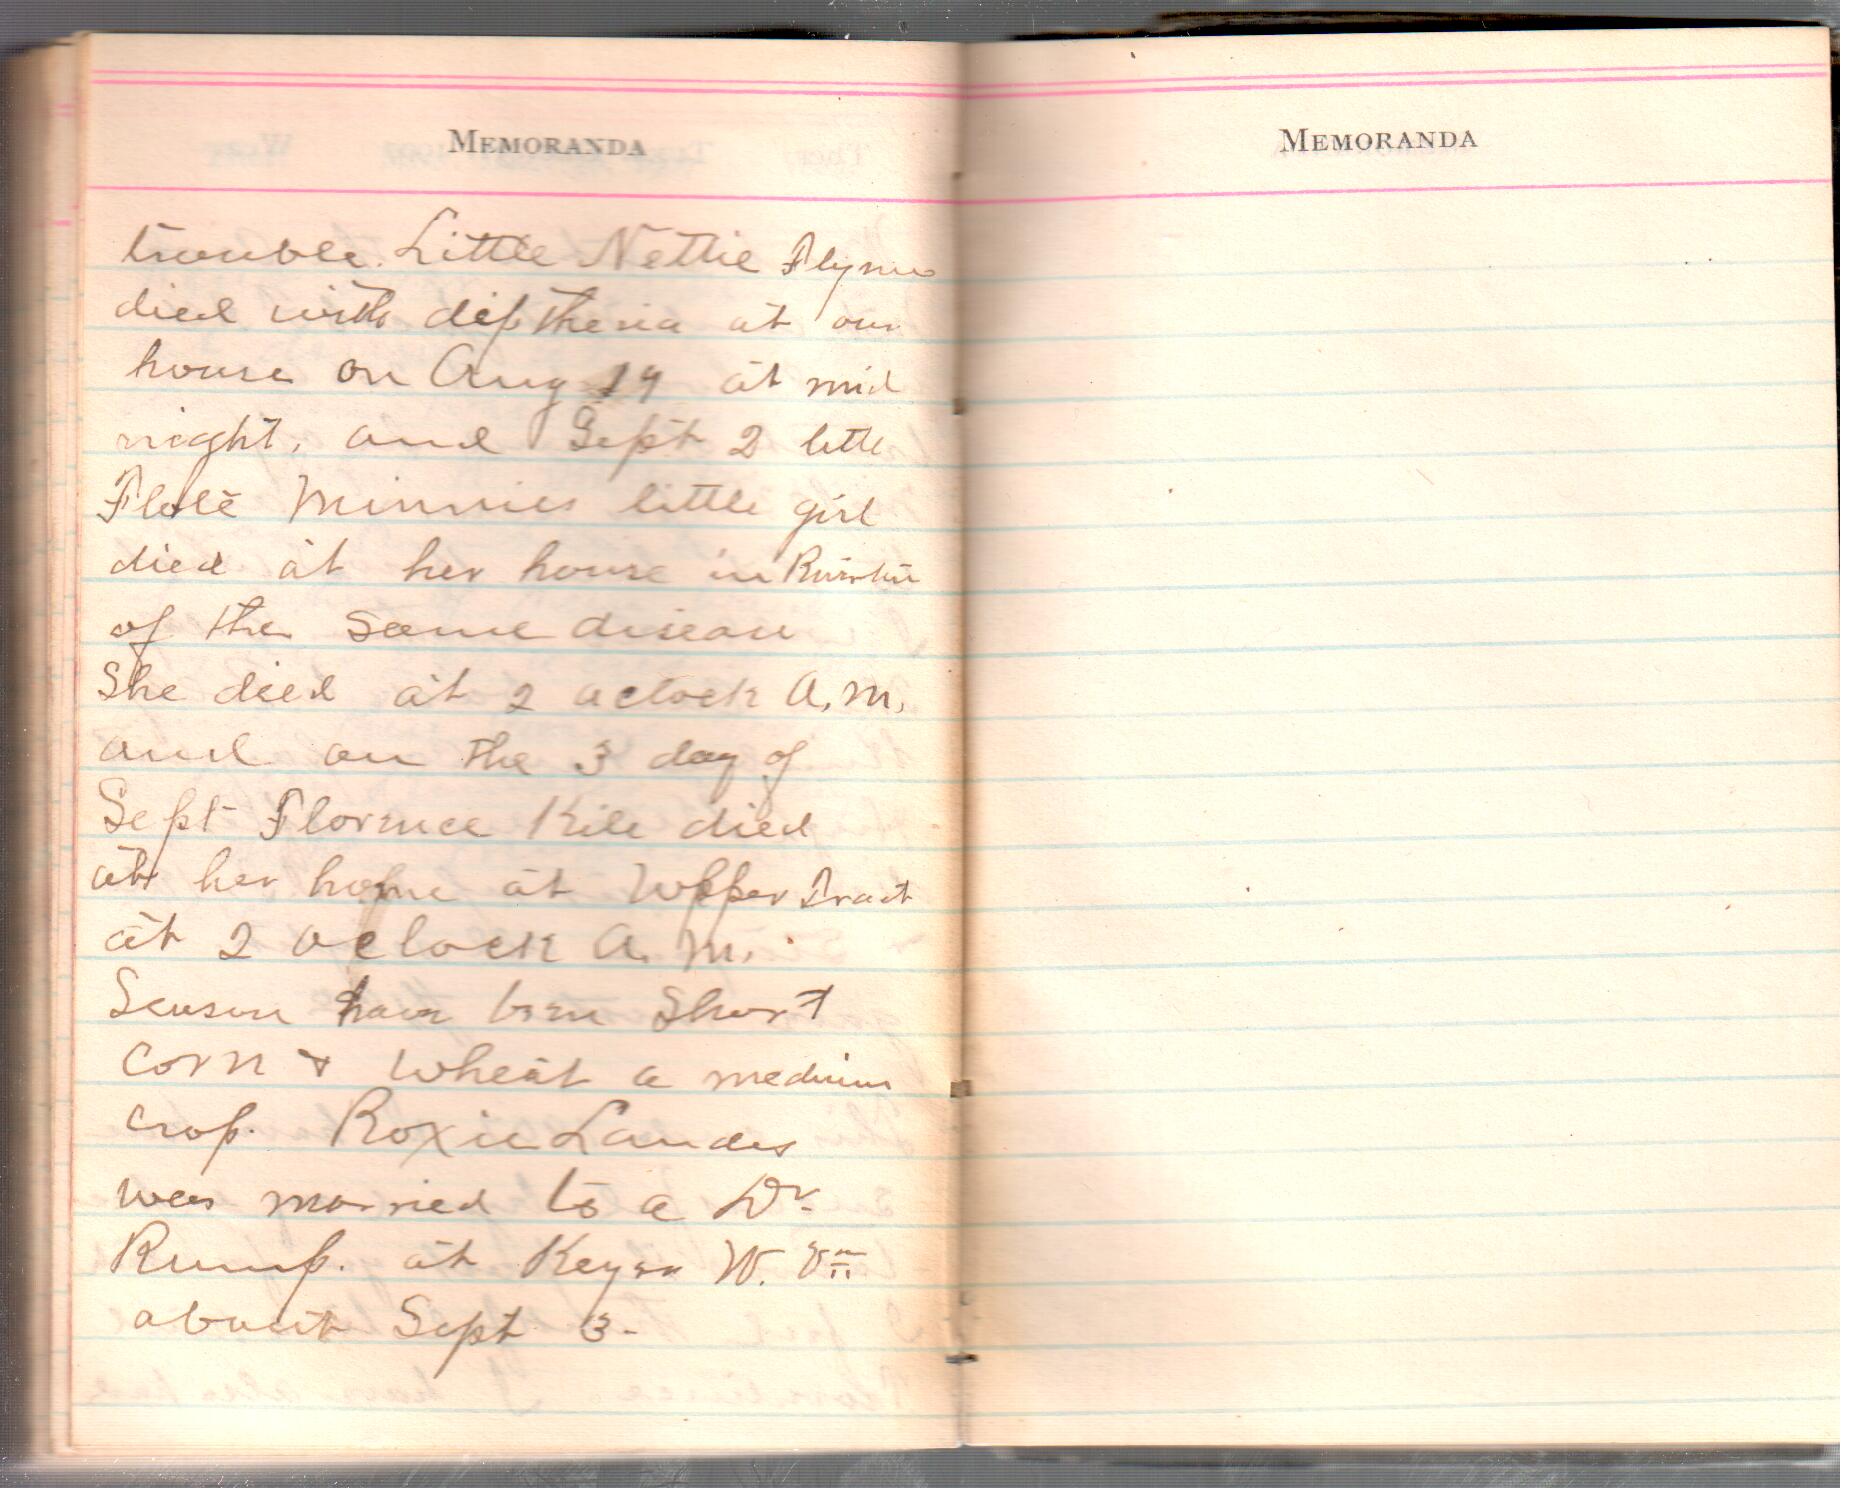 MEMORANDA
trouble. Little Nettie Flynn
died with diptheria at our
house on Aug 19 at mid
night, and Sept 2 little
Minnies little girl
died at her house in
of the same disease
She died at 2 oclock A.M.
and on the 3 day of
Sept Florence Kile died
at her home at Upper Tract
at 2 oclock A.M.
Season have been Short
corn & wheat a medium
crop. Roxie Landes
was married to a Dr.
Rump. at Keyser W. Va
about Sept 3-
MEMORANDA